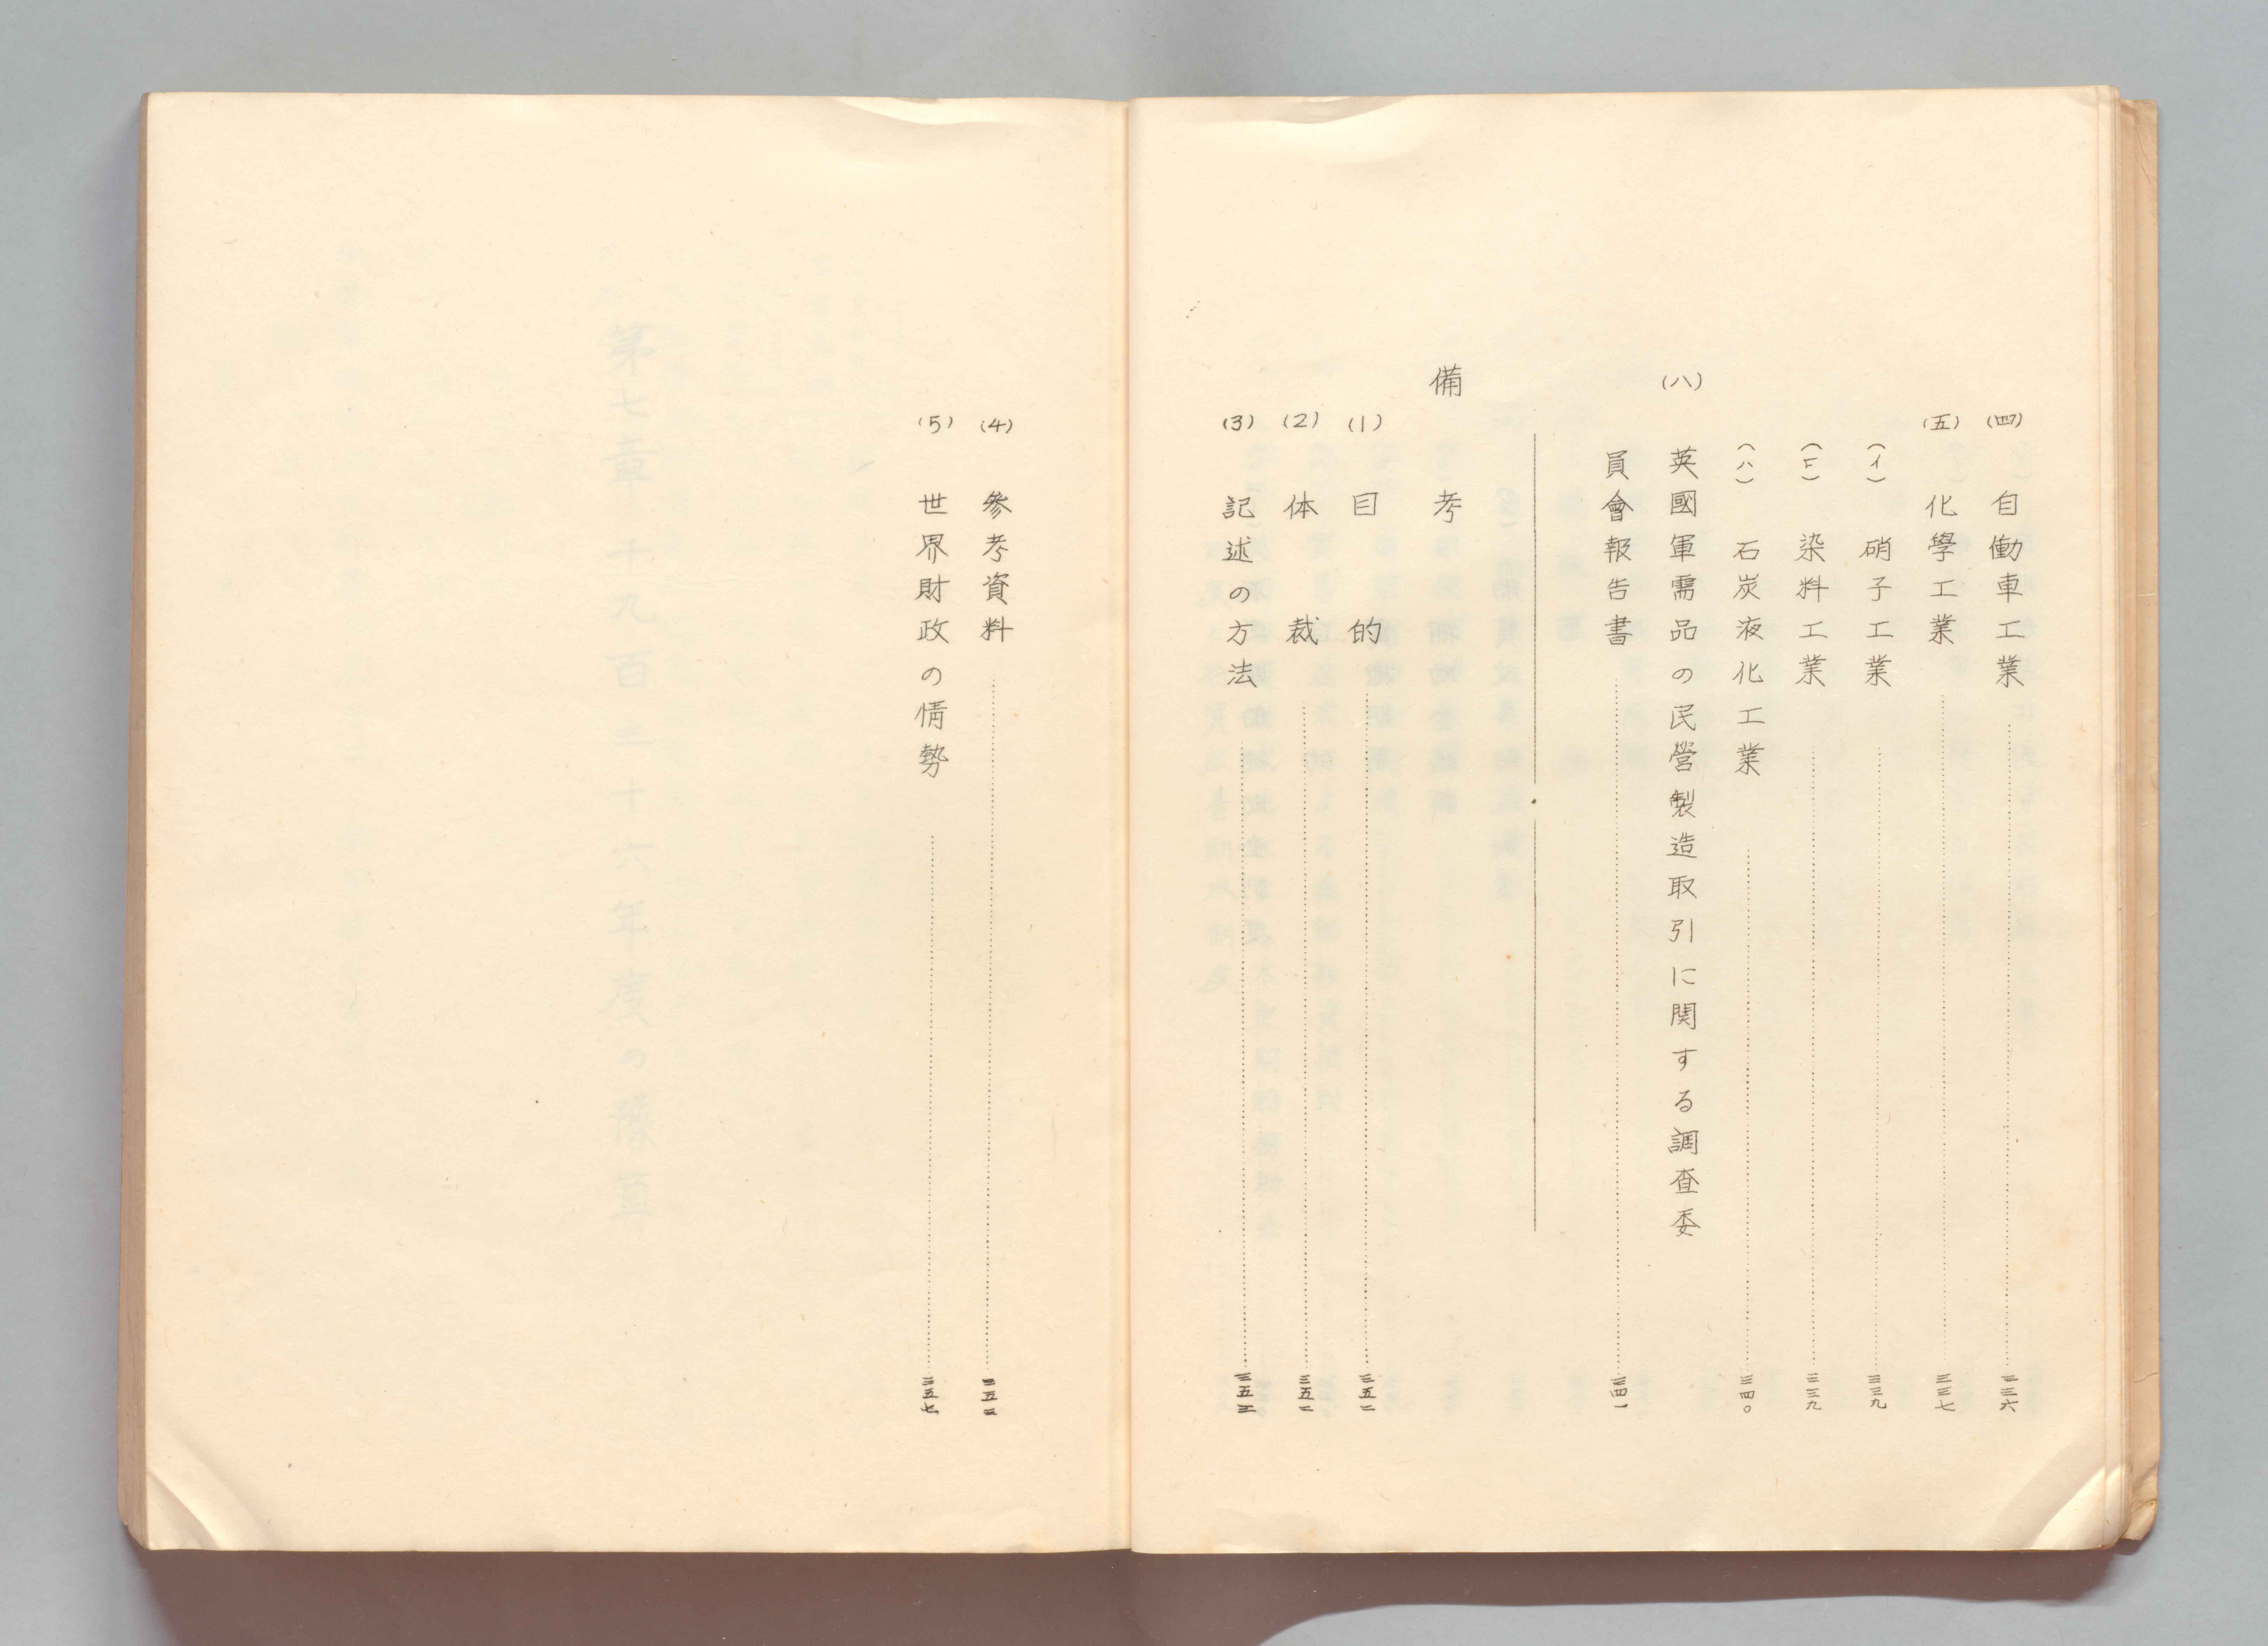 (四) 自働車工業 三三六
(五) 化學工業 三三七
(イ) 硝子工業 三三九
(ロ) 染料工業 三三九
(ハ) 石炭液化工業 三四〇
(八) 英國軍需品の民營製造取引に関する調査委
員會報告書 三四一
備考
(1) 目的 三五二
(2) 体裁 三五二
(3) 記述の方法 三五三
(4) 参考資料 三五三
(5) 世界財政の情勢 三五七
第七章 千九百三十六年度の豫算